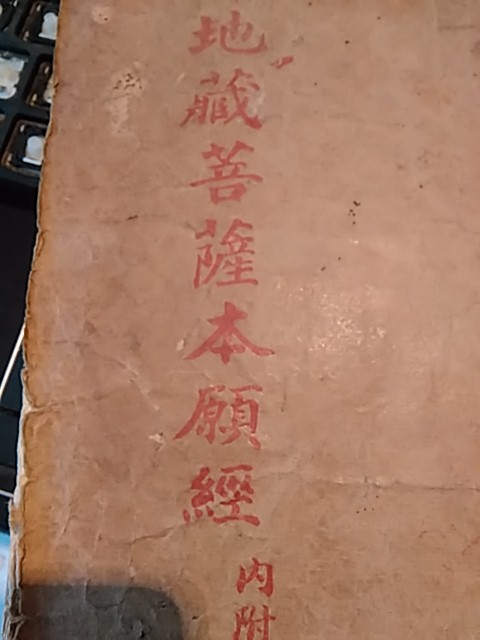 地藏菩薩本願經
內附